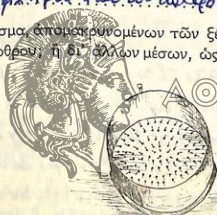 σμα, ἀπομακρυνομένων τῶν ξέ
ρθρου, ἢ δι' ἄλλων μέσων, ὡς
ΑΘ